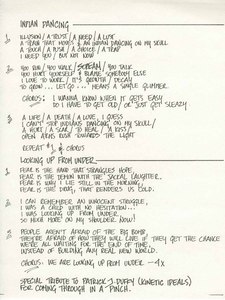 INDIAN DANCING
1. ILLUSION / A TRUST / A NEED / A LUST
A TRAIN THAT MOVES & AN INDIAN DANCING ON MY SKULL
A TOUCH / A RUSH / A CHOICE / A TRAP
I NEED YOU / BUT NOT NOW
2. YOU RUN / YOU WALK / SCREAM / YOU TALK
YOU HURT YOURSELF & BLAME SOMEBODY ELSE
I LOVE TO WORK / IT'S GROWTH / DECAY
TO GROW... LET GO... MEANS A SIMPLE GLIMMER.
CHORUS: I WANNA KNOW WHEN IT GETS EASY
DO I HAVE TO GET OLD / OR JUST GET SLEAZY
3. A LIFE / A DEATH / A LOVE, I GUESS
I CAN'T STOP INDIANS DANCING ON MY SKULL /
A HURT / A SCAR / TO HEAL / A KISS /
OPEN ARMS RUSH TOWARDS THE LIGHT
REPEAT #1 & CHORUS
LOOKING UP FROM UNDER
1. FEAR IS THE HAND THAT STRANGLES HOPE,
FEAR IS THE DEMON WITH THE SOCIAL LAUGHTER.
FEAR IS WHY I LIE STILL IN THE MORNING,
FEAR IS THE DRUG, THAT RENDERS US COLD.
2. I CAN REMEMBER AN INNOCENT STRUGGLE,
I WAS A CHILD WITH NO HESITATION.
I WAS LOOKING UP FROM UNDER,
SO MUCH MORE ON MY SHOULDER NOW!
3. PEOPLE AREN'T AFRAID OF THE BIG BOMB,
THEY'RE AFRAID OF HOW THEY WILL LOVE IF THEY GET THE CHANCE
WE'RE ALL WAITING FOR THE END OF TIME,
INSTEAD OF BUILDING ANY REAL NEW WORLD.
CHORUS: WE ARE LOOKING UP FROM UNDER —4x
SPECIAL TRIBUTE TO PATRICK J. DUFFY (KINETIC IDEALS)
FOR COMING THROUGH IN A PINCH.